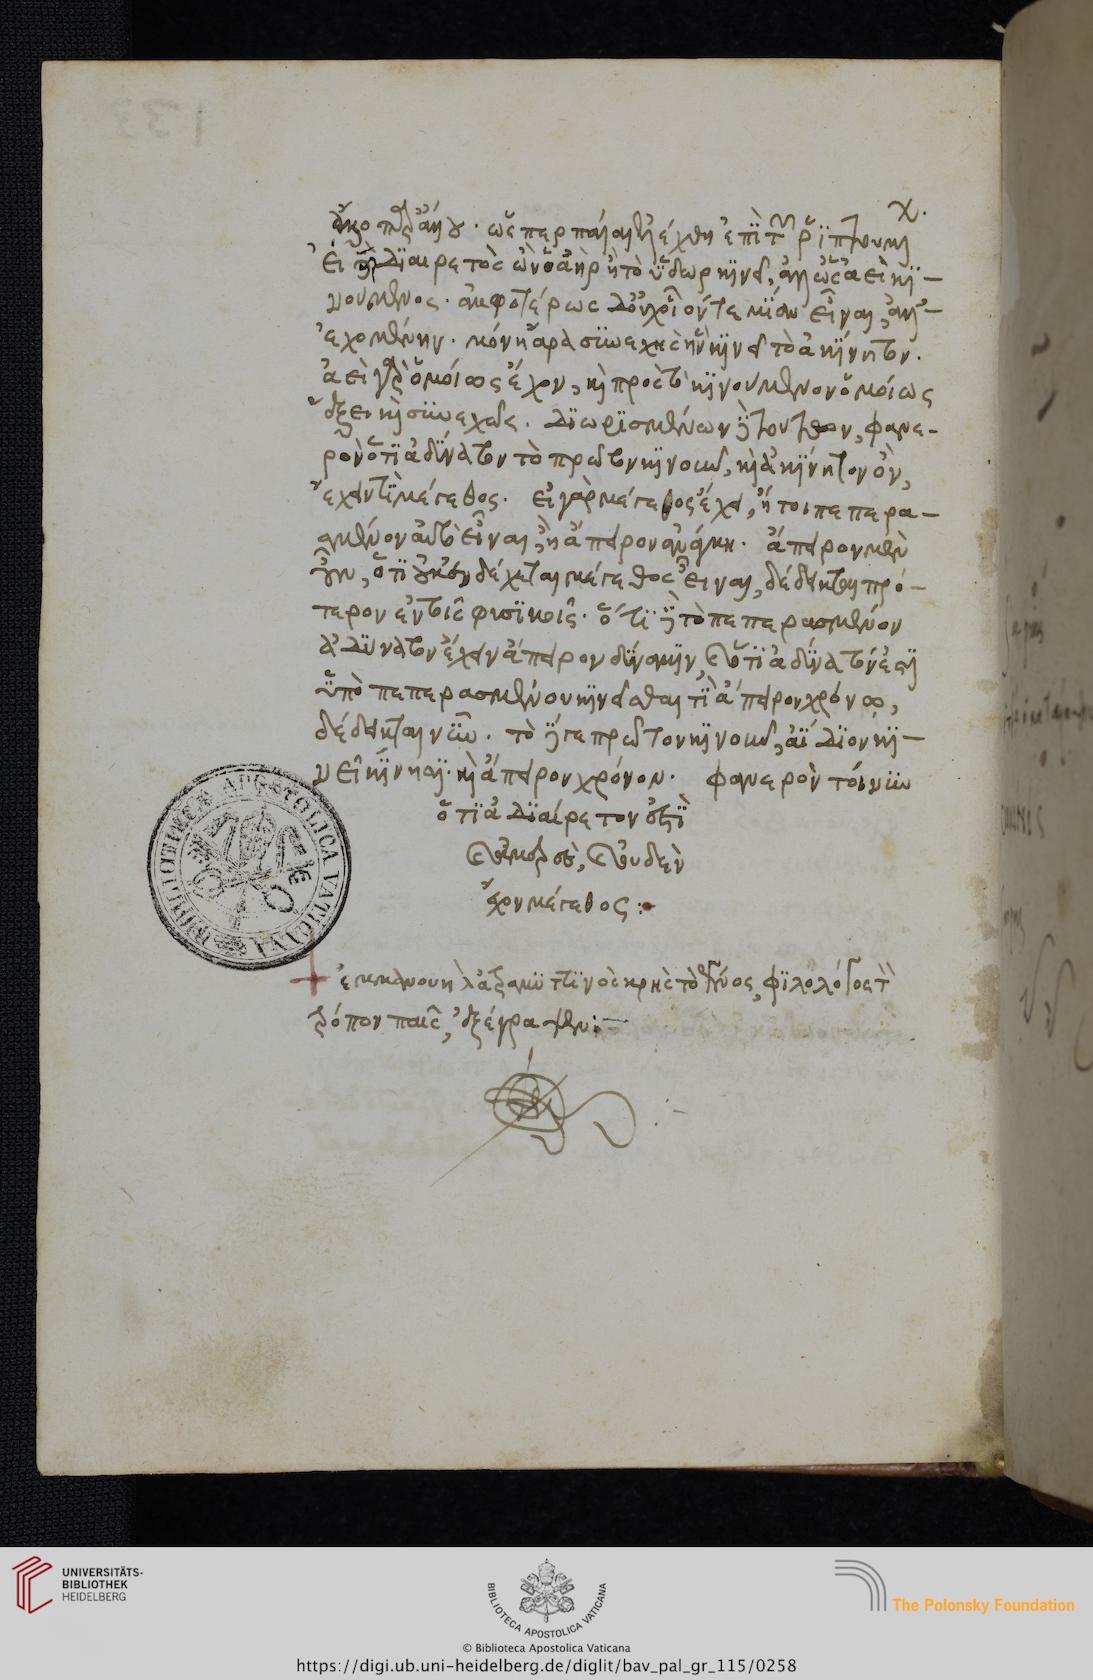 ὥσπερ πάλαι ἐλέχθη ἐπὶ τῶν ῥιπτουμέ
εἰ δὴ διαιρετὸς ὢν ὁ ἀὴρ ἢ τὸ ὕδωρ κινεῖ, ἀλλ' ὡς ἀεὶ κι-
νούμενος· ἀμφοτέρως δ' οὐχ οἷόν τε μίαν εἶναι, ἀλλ'-
ἐχομένην. μόνη ἄρα συνεχὴς ἣν κινεῖ τὸ ἀκίνητον.
ἀεὶ γὰρ ὁμοίως ἔχον, καὶ πρὸς τὸ κινούμενον ὁμοίως
ἕξει καὶ συνεχῶς. διωρισμένων δὲ τούτων, φανε-
ρὸν ὅτι ἀδύνατον τὸ πρῶτον κινοῦν, καὶ ἀκίνητον ὂν,
ἔχειν τὶ μέγεθος. εἰ γὰρ μέγεθος ἔχει, ἤτοι πεπερα-
σμένον αὐτὸ εἶναι, ἢ ἄπειρον ἀνάγκη. ἄπειρον μὲν
οὖν, ὅτι οὐκ ἐνδέχεται μέγεθος εἶναι, δέδεικται πρό-
τερον ἐν τοῖς φυσικοῖς. ὅτι δὲ τὸ πεπερασμένον
ἀδύνατον ἔχειν ἄπειρον δύναμιν, καὶ ὅτι ἀδύνατόν ἐστι
ὑπὸ πεπερασμένου κινεῖσθαι τὶ ἄπειρον χρόνον,
δέδεικται νῦν. τὸ δέ γε πρῶτον κινοῦν, ἀΐδιον κι-
νεῖ κίνησιν καὶ ἄπειρον χρόνον. φανερὸν τοίνυν
ὅτι ἀδιαίρετον ἐστὶ
καὶ ἀμερὲς, καὶ οὐδὲν
ἔχον μέγεθος :
ἐμμανουὴλ ἀτραμυττινὸς κρὴς τὸ γένος, φιλολόγος τὸν
τρόπον παῖς, ἐξέγραψεν:
BIBLIOTHECA APOSTOLICA VATICANA
UNIVERSITÄTS-
BIBLIOTHEK
HEIDELBERG
BIBLIOTECA APOSTOLICA VATICANA
© Biblioteca Apostolica Vaticana
The Polonsky Foundation
https://digi.ub.uni-heidelberg.de/diglit/bav_pal_gr_115/0258